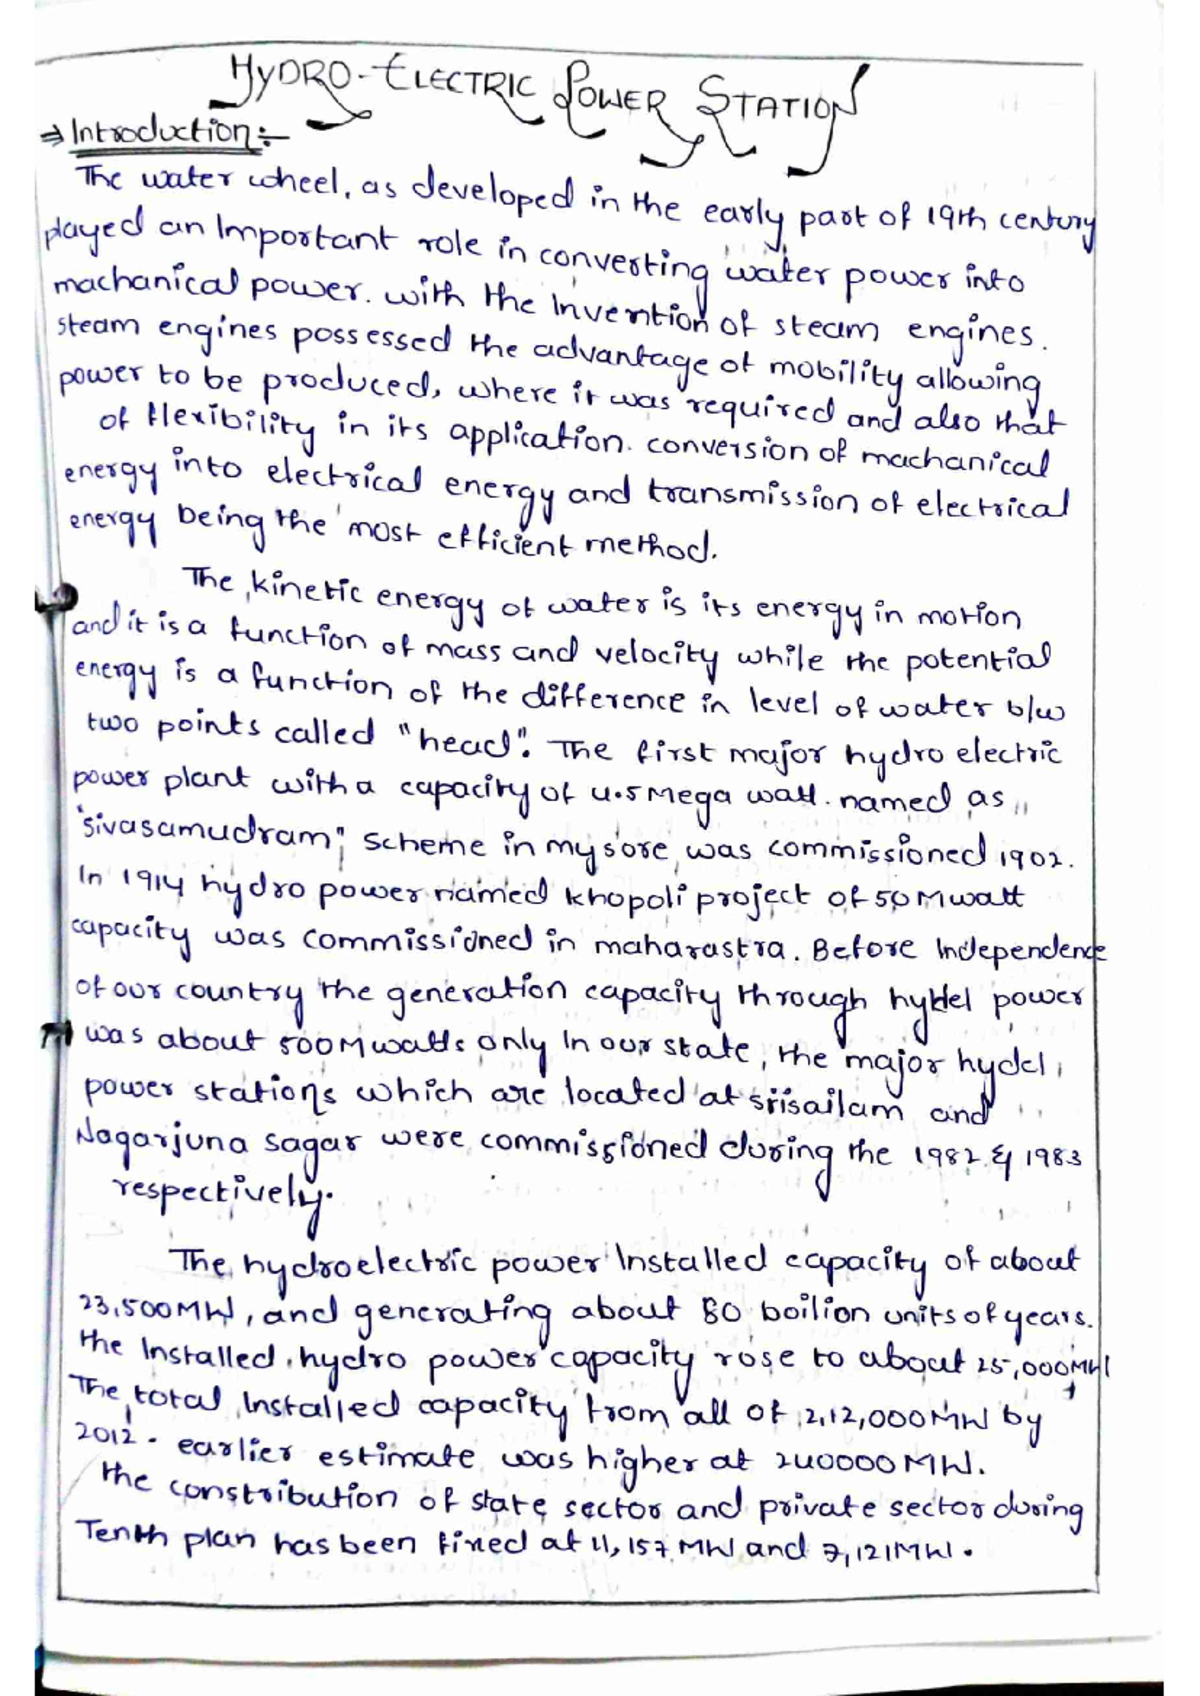 HYDRO-ELECTRIC POWER STATION
⇒ Introduction:-
The water wheel, as developed in the early part of 19th century
played an Important role in converting water power into
machanical power. with the Invention of steam engines.
steam engines possessed the advantage of mobility allowing
power to be produced, where it was required and also that
of flexibility in its application. conversion of machanical
energy into electrical energy and transmission of electrical
energy being the most efficient method.
The kinetic energy of water is its energy in motion
and it is a function of mass and velocity while the potential
energy is a function of the difference in level of water b/w
two points called "head". The first major hydro electric
power plant with a capacity of 4.5 Mega watt. named as
"sivasamudram", scheme in mysore was commissioned 1902.
In 1914 hydro power named khopoli project of 50 Mwatt
capacity was commissioned in maharastra. Before Independence
of our country the generation capacity through hydel power
was about 500 Mwatts only In our state, the major hydel
power stations which are located at srisailam and
Nagarjuna sagar were commissioned during the 1982 & 1983
respectively.
The hydroelectric power Installed capacity of about
23,500MW, and generating about 80 boilion units of years.
the Installed hydro power capacity rose to about 25,000MW
The total Installed capacity from all of 2,12,000MW by
2012. earlier estimate was higher at 240000 MW.
the constribution of state sector and private sector during
Tenth plan has been fixed at 11,157 MW and 7,121MW.